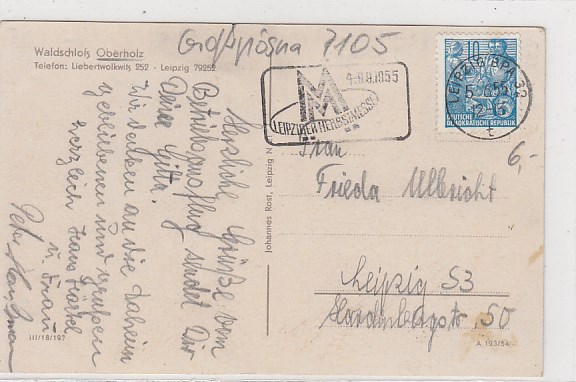 Großpösna 7105
Waldschloß Oberholz
Telefon: Liebertwolkwitz 252 - Leipzig 79252
Herzliche Grüße vom
Betriebsausflug sendet Dir
Deine Gitta.
Wir denken an die daheim
gebliebenen und grüßen
herzlich Hans
u. Frau
Peter
III/18/197
Johannes Rost, Leipzig N
MM
4.-9.9.1955
LEIPZIGER HERBSTMESSE
10
DEUTSCHE
DEMOKRATISCHE REPUBLIK
LEIPZIG BPA 32
t
6,-
Frau
Frieda Ulbricht
Leipzig S3
Hardenbergstr. 50
A 193/54